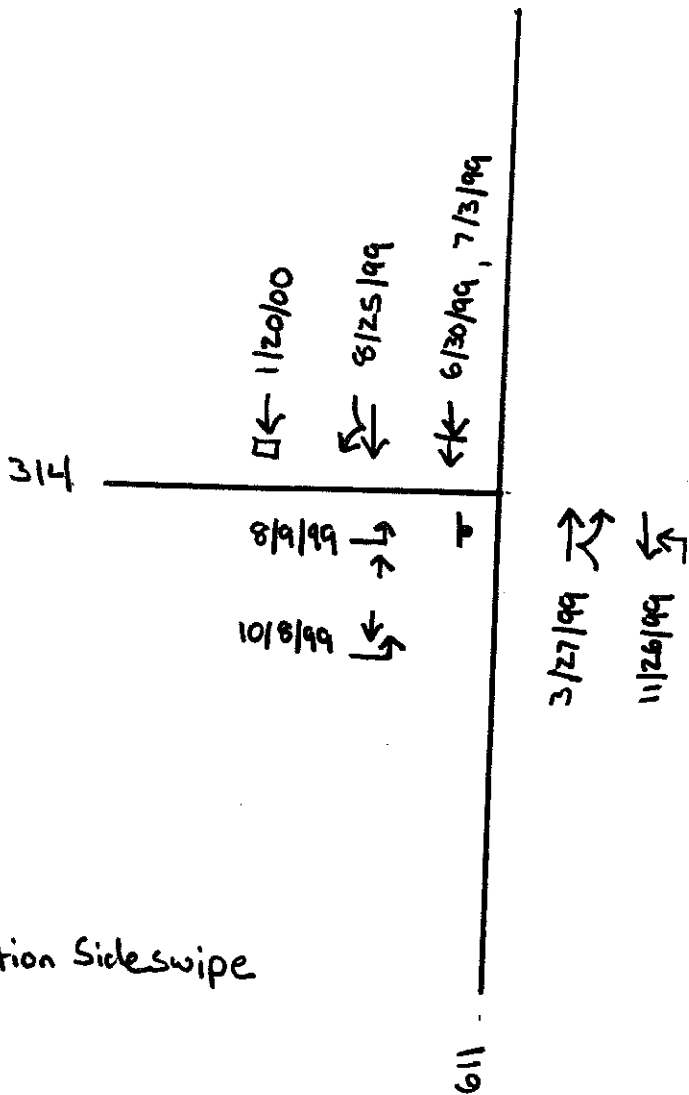 314
1/20/00
8/25/99
6/30/99, 7/3/99
8/9/99
10/8/99
3/27/99
11/26/99
tion Sideswipe
611